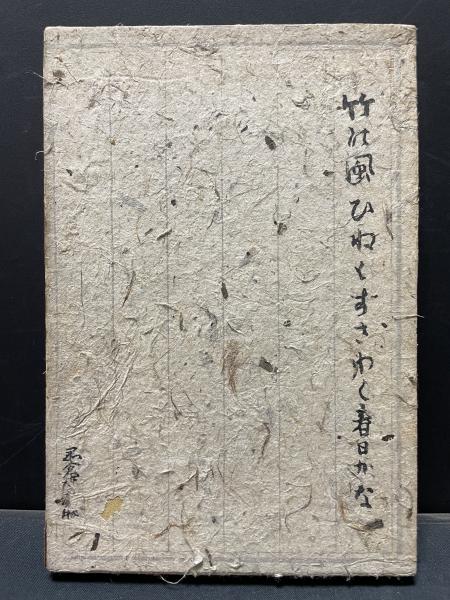 竹の風ひねもすさわく春日かな